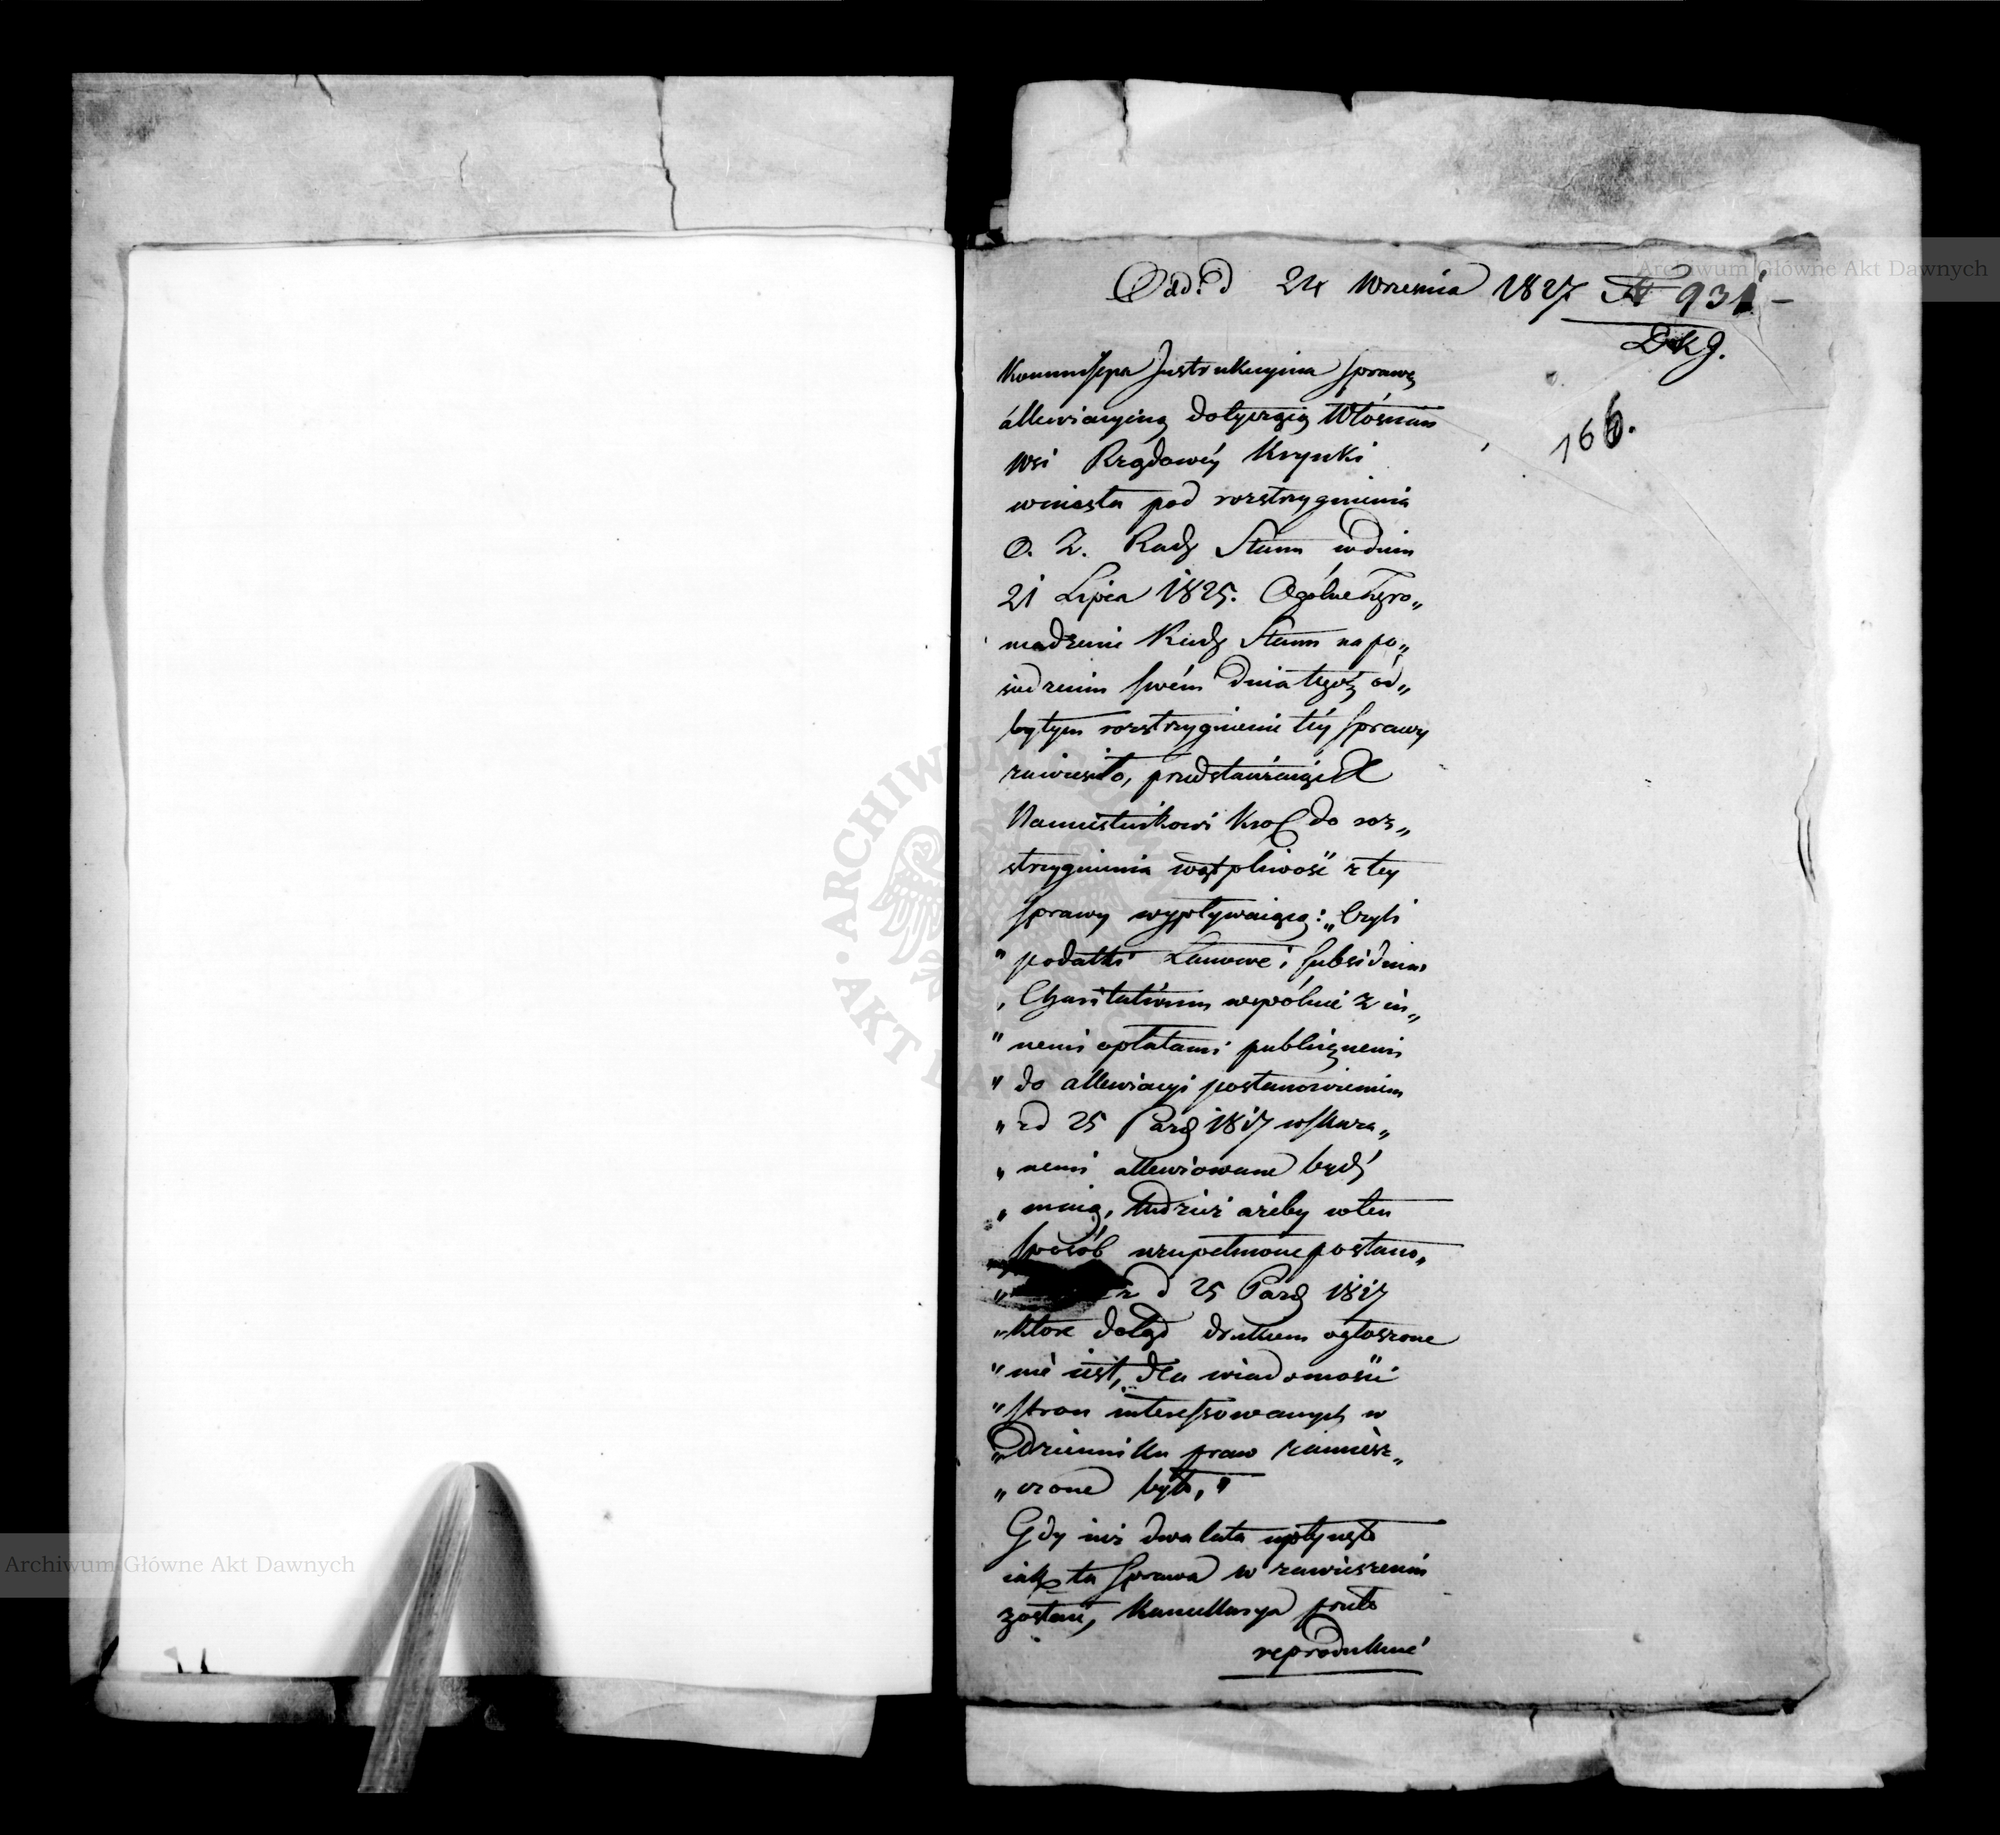 Odd. d 24 Wrzesnia 1827 N 931 –
DKJ.
166.
Kommissya Instrukcyina sprawę
allewiacyiną dotyczącą Włoscian
Wsi Rządowéy Krynki
wniosła pod rozstrzygnienia
O. Z. Rady Stanu w dniu
21 Lipca 1825. Ogólne Zgro„
madzenie Rady Stanu na po„
siedzeniu swém dnia tegoż od„
bytym rozstrzygnienie téy sprawy
zawiesiło, przedstawiaiąc X
Namiestnikowi Kró do roz„
strzygnienia wątpliwość z tey
sprawy wypływaiącą: „Czyli
„ podatki Łanowe i Subsidium
„ Charitativum wspólnie z in„
„ nemi opłatami publicznemi
„ do allewiacyi postanowieniem
„ z d 25 Paźd 1817 wskaza„
„ nemi allewiowane będź
„ maią, tudzież ażeby w ten
„ sposób uzupełnione postano„
„ z d 25 Paźd 1817
„ które dotąd drukiem ogłoszone
„ nie iest, dla wiadomości
„ stron interessowanych w
„ Dzienniku praw zamiesz„
„ czone było, "
Gdy iuż dwa lata upłynęło
iak ta sprawa w zawieszeniu
zostaie, Kancellarya przeto
reprodukuie
Archiwum Główne Akt Dawnych
Archiwum Główne Akt Dawnych
ARCHIWUM GŁÓWNE AKT DAWNYCH